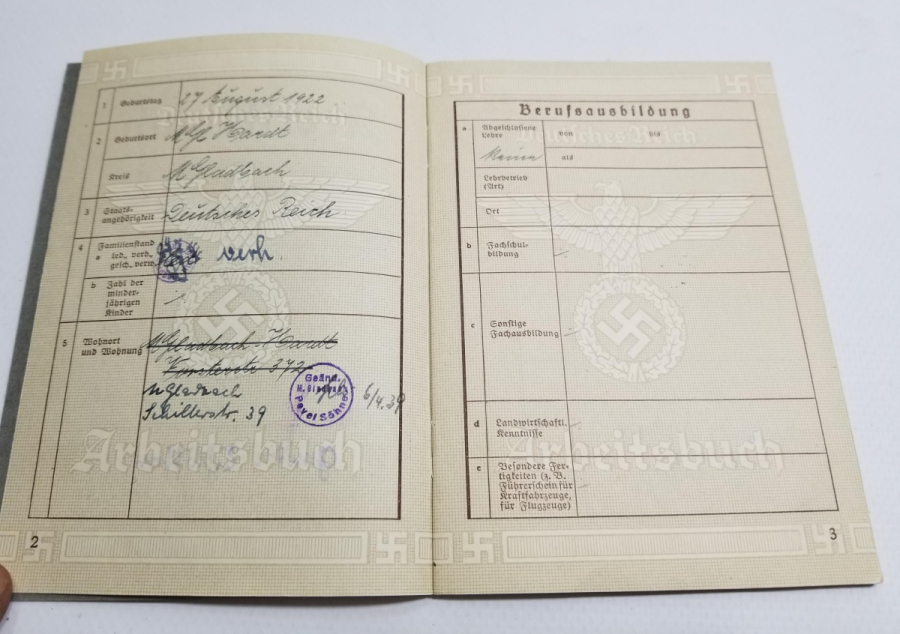 1 Geburtstag 27 August 1922
2 Geburtsort M.Gl. Hardt
Kreis M Gladbach
3 Staats-
angehörigkeit Deutsches Reich
4 Familienstand
a led., verh.,
gesch., verw. verh.
b Zahl der
minder-
jährigen
Kinder
5 Wohnort
und Wohnung M Gladbach-Hardt
372
M Gladbach
Schillerstr. 39
Geänd.
Pavel Söhne
6/4.39
Arbeitsbuch
2
Berufsausbildung
Deutsches Reich
a Abgeschlossene
Lehre von bis
keine als
Lehrbetrieb
(Art)
Ort
b Fachschul-
bildung
c Sonstige
Fachausbildung
d Landwirtschaftl.
Kenntnisse
e Besondere Fer-
tigkeiten (z. B.
Führerschein für
Kraftfahrzeuge,
für Flugzeuge)
Arbeitsbuch
3